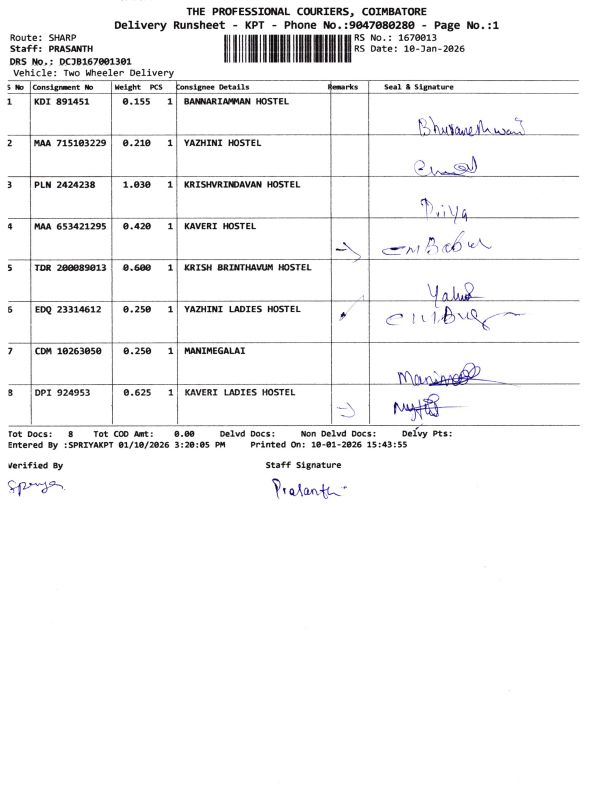 THE PROFESSIONAL COURIERS, COIMBATORE
Delivery Runsheet - KPT - Phone No.:9047080280 - Page No.:1
Route: SHARP RS No.: 1670013
Staff: PRASANTH RS Date: 10-Jan-2026
DRS No.: DCJB167001301
Vehicle: Two Wheeler Delivery
S No Consignment No Weight PCS Consignee Details Remarks Seal & Signature
1 KDI 891451 0.155 1 BANNARIAMMAN HOSTEL
2 MAA 715103229 0.210 1 YAZHINI HOSTEL
3 PLN 2424238 1.030 1 KRISHVRINDAVAN HOSTEL
Priya
4 MAA 653421295 0.420 1 KAVERI HOSTEL
5 TDR 200089013 0.600 1 KRISH BRINTHAVUM HOSTEL
6 EDQ 23314612 0.250 1 YAZHINI LADIES HOSTEL
7 CDM 10263050 0.250 1 MANIMEGALAI
8 DPI 924953 0.625 1 KAVERI LADIES HOSTEL
Tot Docs: 8 Tot COD Amt: 0.00 Delvd Docs: Non Delvd Docs: Delvy Pts:
Entered By :SPRIYAKPT 01/10/2026 3:20:05 PM Printed On: 10-01-2026 15:43:55
Verified By Staff Signature
Prasanth